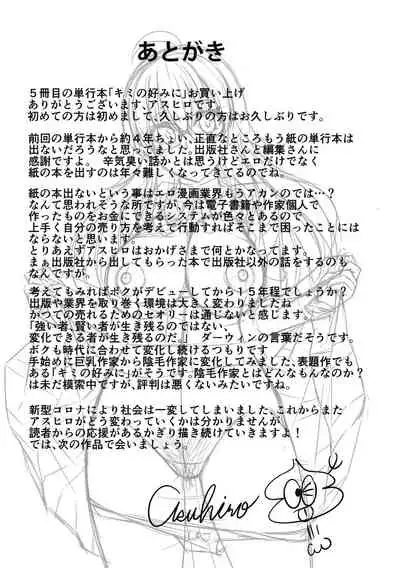 あとがき
５冊目の単行本「キミの好みに」お買い上げ
ありがとうございます、アスヒロです。
初めての方は初めまして、久しぶりの方はお久しぶりです。
前回の単行本から約４年ちょい、正直なところもう紙の単行本は
出ないだろうなと思ってました。出版社さんと編集さんに
感謝ですよ。 辛気臭い話かとは思うけどエロだけでなく
紙の本を出すのは年々難しくなってきてるのでね。
紙の本出ないという事はエロ漫画業界もうアカンのでは…？
なんて思われそうな所ですが、今は電子書籍や作家個人で
作ったものをお金にできるシステムが色々とあるので
上手く自分の売り方を考えて行動すればそこまで困ったことには
ならないと思います。
とりあえずアスヒロはおかげさまで何とかなってます。
まぁ出版社から出してもらった本で出版社以外の話をするのも
なんですが。
考えてもみればボクがデビューしてから１５年程でしょうか？
出版や業界を取り巻く環境は大きく変わりましたね
かつての売れるためのセオリーは通じないと感じます。
「強い者、賢い者が生き残るのではない、
変化できる者が生き残るのだ。」 ダーウィンの言葉だそうです。
ボクも時代に合わせて変化し続けるつもりです
手始めに巨乳作家から陰毛作家に変化してみました、表題作でも
ある「キミの好みに」がそうです。陰毛作家とはどんなもんなのか？
は未だ模索中ですが、評判は悪くないみたいですね。
新型コロナにより社会は一変してしまいました、これからまた
アスヒロがどう変わっていくかは分かりませんが
読者からの応援があるかぎり描き続けていきますよ！
では、次の作品で会いましょう。
Asuhiro